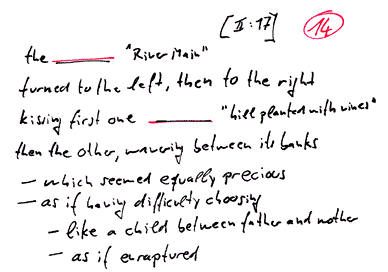 [II:17] 14
the "River Main"
turned to the left, then to the right
kissing first one "hill planted with vines"
then the other, wavering between its banks
- which seemed equally precious
- as if having difficulty choosing
- like a child between father and mother
- as if enraptured